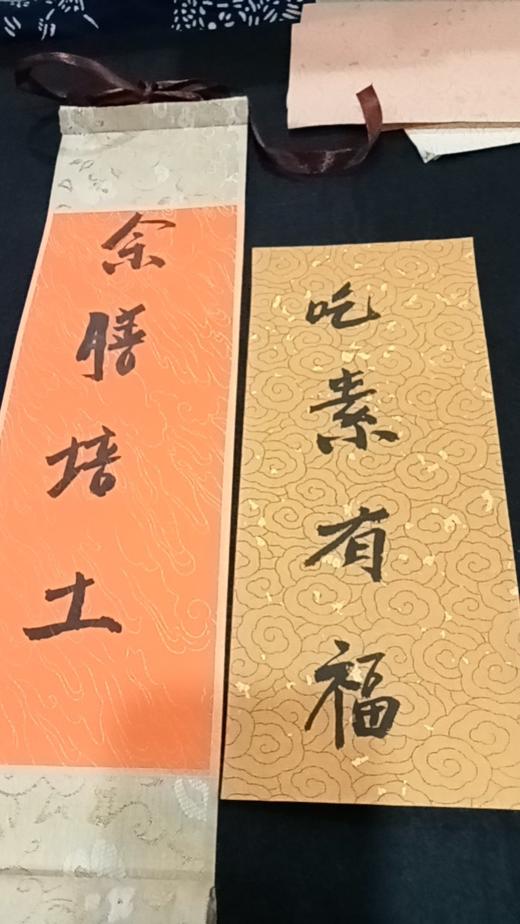 余膳培土
吃素有福